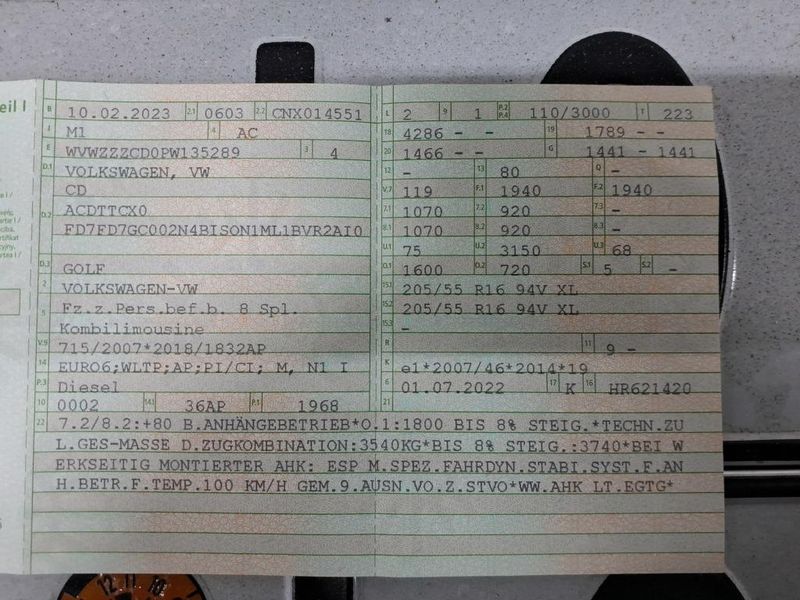 eil I
B 10.02.2023 2.1 0603 2.2 CNX014551
J M1 4 AC
E WVWZZZCD0PW135289 3 4
D.1 VOLKSWAGEN, VW
CD
D.2 ACDTTCX0
FD7FD7GC002N4BISON1ML1BVR2AI0
D.3 GOLF
2 VOLKSWAGEN-VW
5 Fz.z.Pers.bef.b. 8 Spl.
Kombilimousine
V.9 715/2007*2018/1832AP
14 EURO6;WLTP;AP;PI/CI; M, N1 I
P.3 Diesel
10 0002 14.1 36AP P.1 1968
L 2 9 1 P.2 P.4 110/3000 T 223
18 4286 - - 19 1789 - -
20 1466 - - G 1441 - 1441
12 - 13 80 Q -
V.7 119 F.1 1940 F.2 1940
7.1 1070 7.2 920 7.3 -
8.1 1070 8.2 920 8.3 -
U.1 75 U.2 3150 U.3 68
O.1 1600 O.2 720 S.1 5 S.2 -
15.1 205/55 R16 94V XL
15.2 205/55 R16 94V XL
15.3 -
R 11 9 -
K e1*2007/46*2014*19
6 01.07.2022 17 K 16 HR621420
21
22 7.2/8.2:+80 B.ANHÄNGEBETRIEB*O.1:1800 BIS 8% STEIG.*TECHN.ZU
L.GES-MASSE D.ZUGKOMBINATION:3540KG*BIS 8% STEIG.:3740*BEI W
ERKSEITIG MONTIERTER AHK: ESP M.SPEZ.FAHRDYN.STABI.SYST.F.AN
H.BETR.F.TEMP.100 KM/H GEM.9.AUSN.VO.Z.STVO*WW.AHK LT.EGTG*
12 11 10